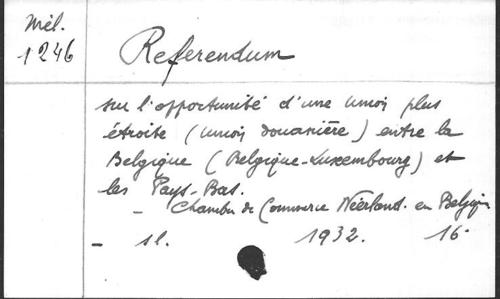 Mél.
1246
Referendum
sur l'opportunité d'une union plus
étroite (union douanière) entre la
Belgique (Belgique-Luxembourg) et
les Pays-Bas.
- Chambre de Commerce Néerland. en Belgique
- sl. 1932. 16°